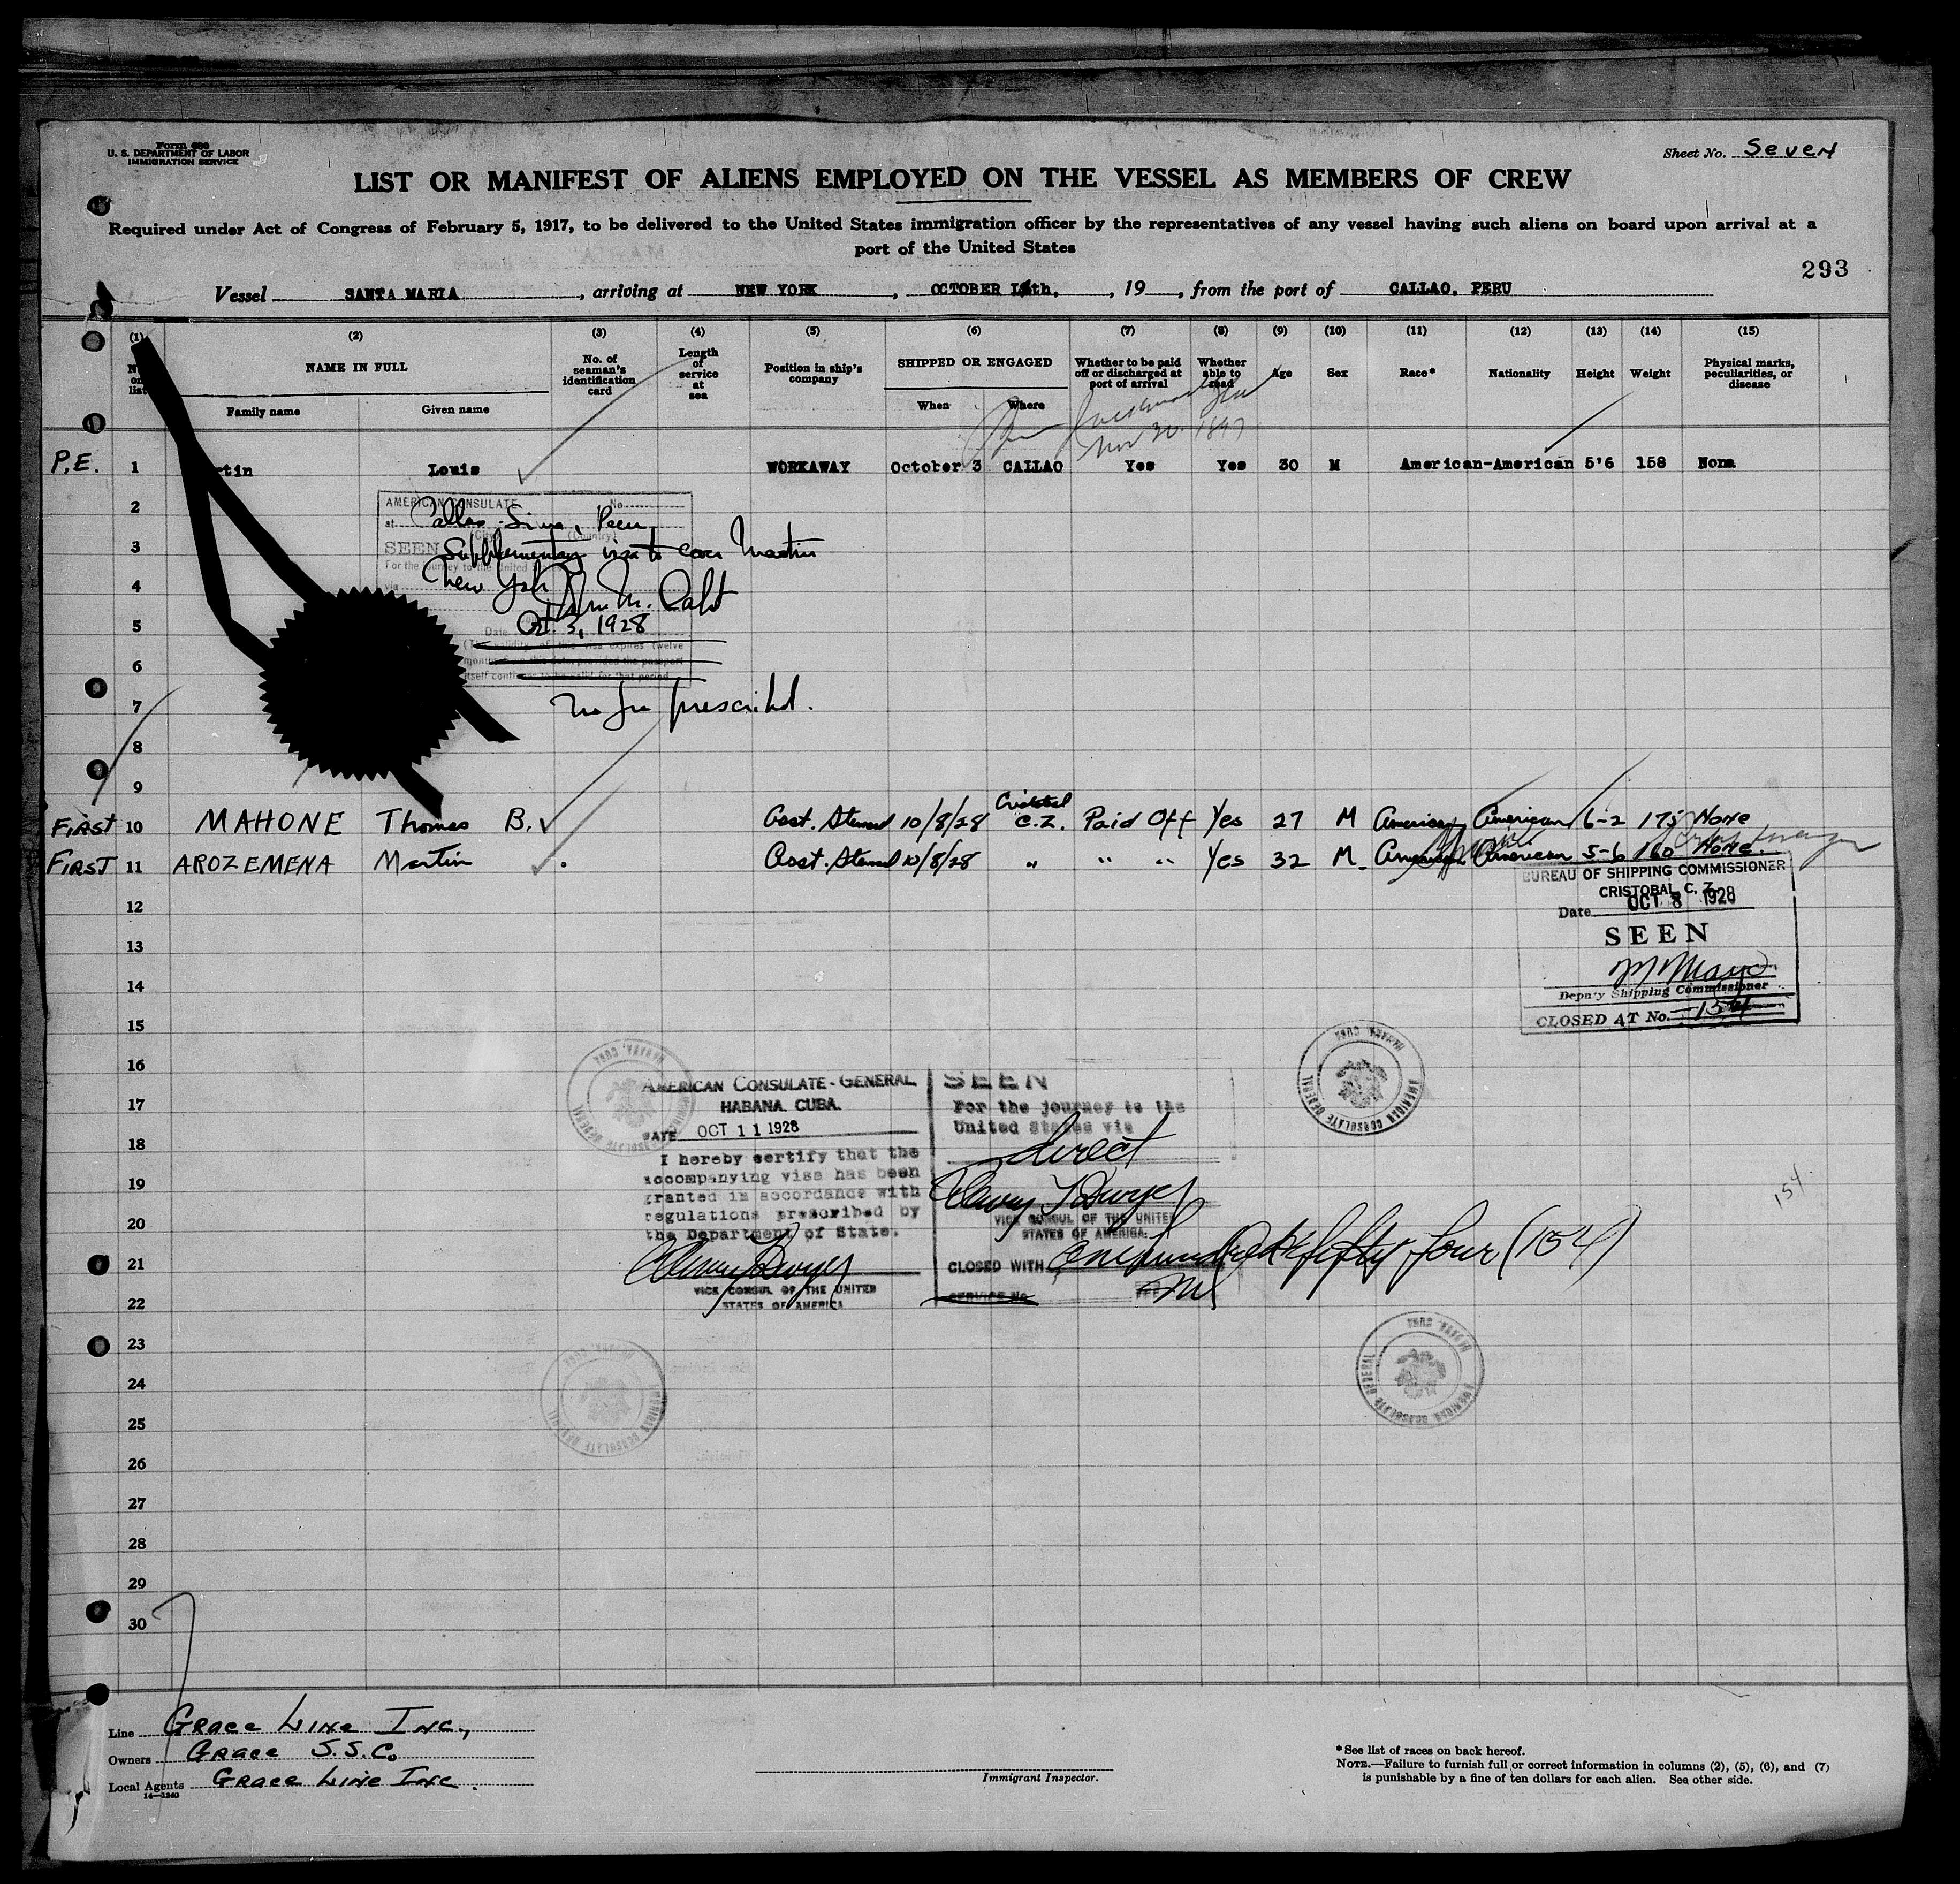 Form 680
U. S. DEPARTMENT OF LABOR
IMMIGRATION SERVICE
Sheet No. Seven
LIST OR MANIFEST OF ALIENS EMPLOYED ON THE VESSEL AS MEMBERS OF CREW
Required under Act of Congress of February 5, 1917, to be delivered to the United States immigration officer by the representatives of any vessel having such aliens on board upon arrival at a
port of the United States
293
Vessel SANTA MARIA, arriving at NEW YORK, OCTOBER th, 19, from the port of CALLAO, PERU
(1) (2) (3) (4) (5) (6) (7) (8) (9) (10) (11) (12) (13) (14) (15)
No. on list
NAME IN FULL
Family name
Given name
No. of seaman's identification card
Length of service at sea
Position in ship's company
SHIPPED OR ENGAGED
When
Where
Whether to be paid off or discharged at port of arrival
Whether able to read
Age
Sex
Race*
Nationality
Height
Weight
Physical marks, peculiarities, or disease
Nov 30 1897
P.E. 1 rtin Louis WORKAWAY October 3 CALLAO Yes Yes 30 M American-American 5'6 158 None
2
AMERICAN CONSULATE No.
at Callao-Lima, Peru
(City) (Country)
3
SEEN Supplementary visa to cover Martin
For the journey to the United
4
via New York
5
Date Oct. 3, 1928
(The validity of this visa expires twelve
6
months from this date provided the passport
itself continues to be valid for that period
7
No fee prescribed.
8
9
FIRST 10 MAHONE Thomas B. Asst. Steward 10/8/28 Cristobal C.Z. Paid Off Yes 27 M American American 6-2 175 None
FIRST 11 AROZEMENA Martin Asst. Steward 10/8/28 " " " Yes 32 M American American 5-6 160 None.
BUREAU OF SHIPPING COMMISSIONER
CRISTOBAL, C. Z.
12
Date OCT 8 1928
13
SEEN
14
M Mayo
Deputy Shipping Commissioner
15
CLOSED AT No. 154
16
AMERICAN CONSULATE-GENERAL
HABANA, CUBA.
17
DATE OCT 11 1928
18
I hereby certify that the
accompanying visa has been
19
granted in accordance with
regulations prescribed by
20
the Department of State.
21
VICE CONSUL OF THE UNITED
22
STATES OF AMERICA
SEEN
For the journey to the
United States via
direct
VICE CONSUL OF THE UNITED
STATES OF AMERICA.
CLOSED WITH One hundred & fifty four (154)
SERVICE No.
FEE
AMERICAN CONSULATE GENERAL HABANA, CUBA
AMERICAN CONSULATE GENERAL HABANA, CUBA
AMERICAN CONSULATE GENERAL HABANA, CUBA
AMERICAN CONSULATE GENERAL HABANA, CUBA
154
23
24
25
26
27
28
29
30
Line Grace Line Inc.,
Owners Grace S.S.Co
Local Agents Grace Line Inc.
14—1240
Immigrant Inspector.
*See list of races on back hereof.
NOTE.—Failure to furnish full or correct information in columns (2), (5), (6), and (7)
is punishable by a fine of ten dollars for each alien. See other side.